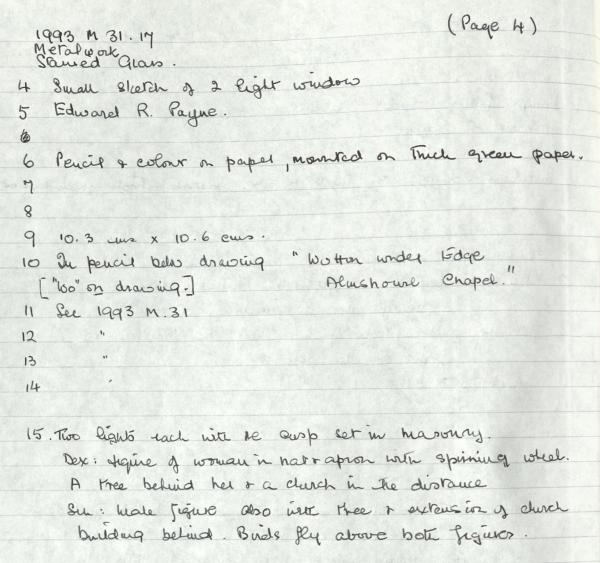 (Page 4)
1993 M 31.17
Metalwork
Stained Glass.
4 Small sketch of 2 light window
5 Edward R. Payne.
6
6 Pencil & colour on paper, mounted on thick green paper.
7
8
9 10.3 cms x 10.6 cms.
10 In pencil below drawing "Wotton under Edge
["Wo" on drawing.] Almshouse Chapel."
11 See 1993 M.31
12 "
13 "
14 "
15. Two lights each with cusp set in masonry.
Dex: figure of woman in hat & apron with spinning wheel.
A tree behind her & a church in the distance
Sin: male figure also with tree & extension of church
building behind. Birds fly above both figures.